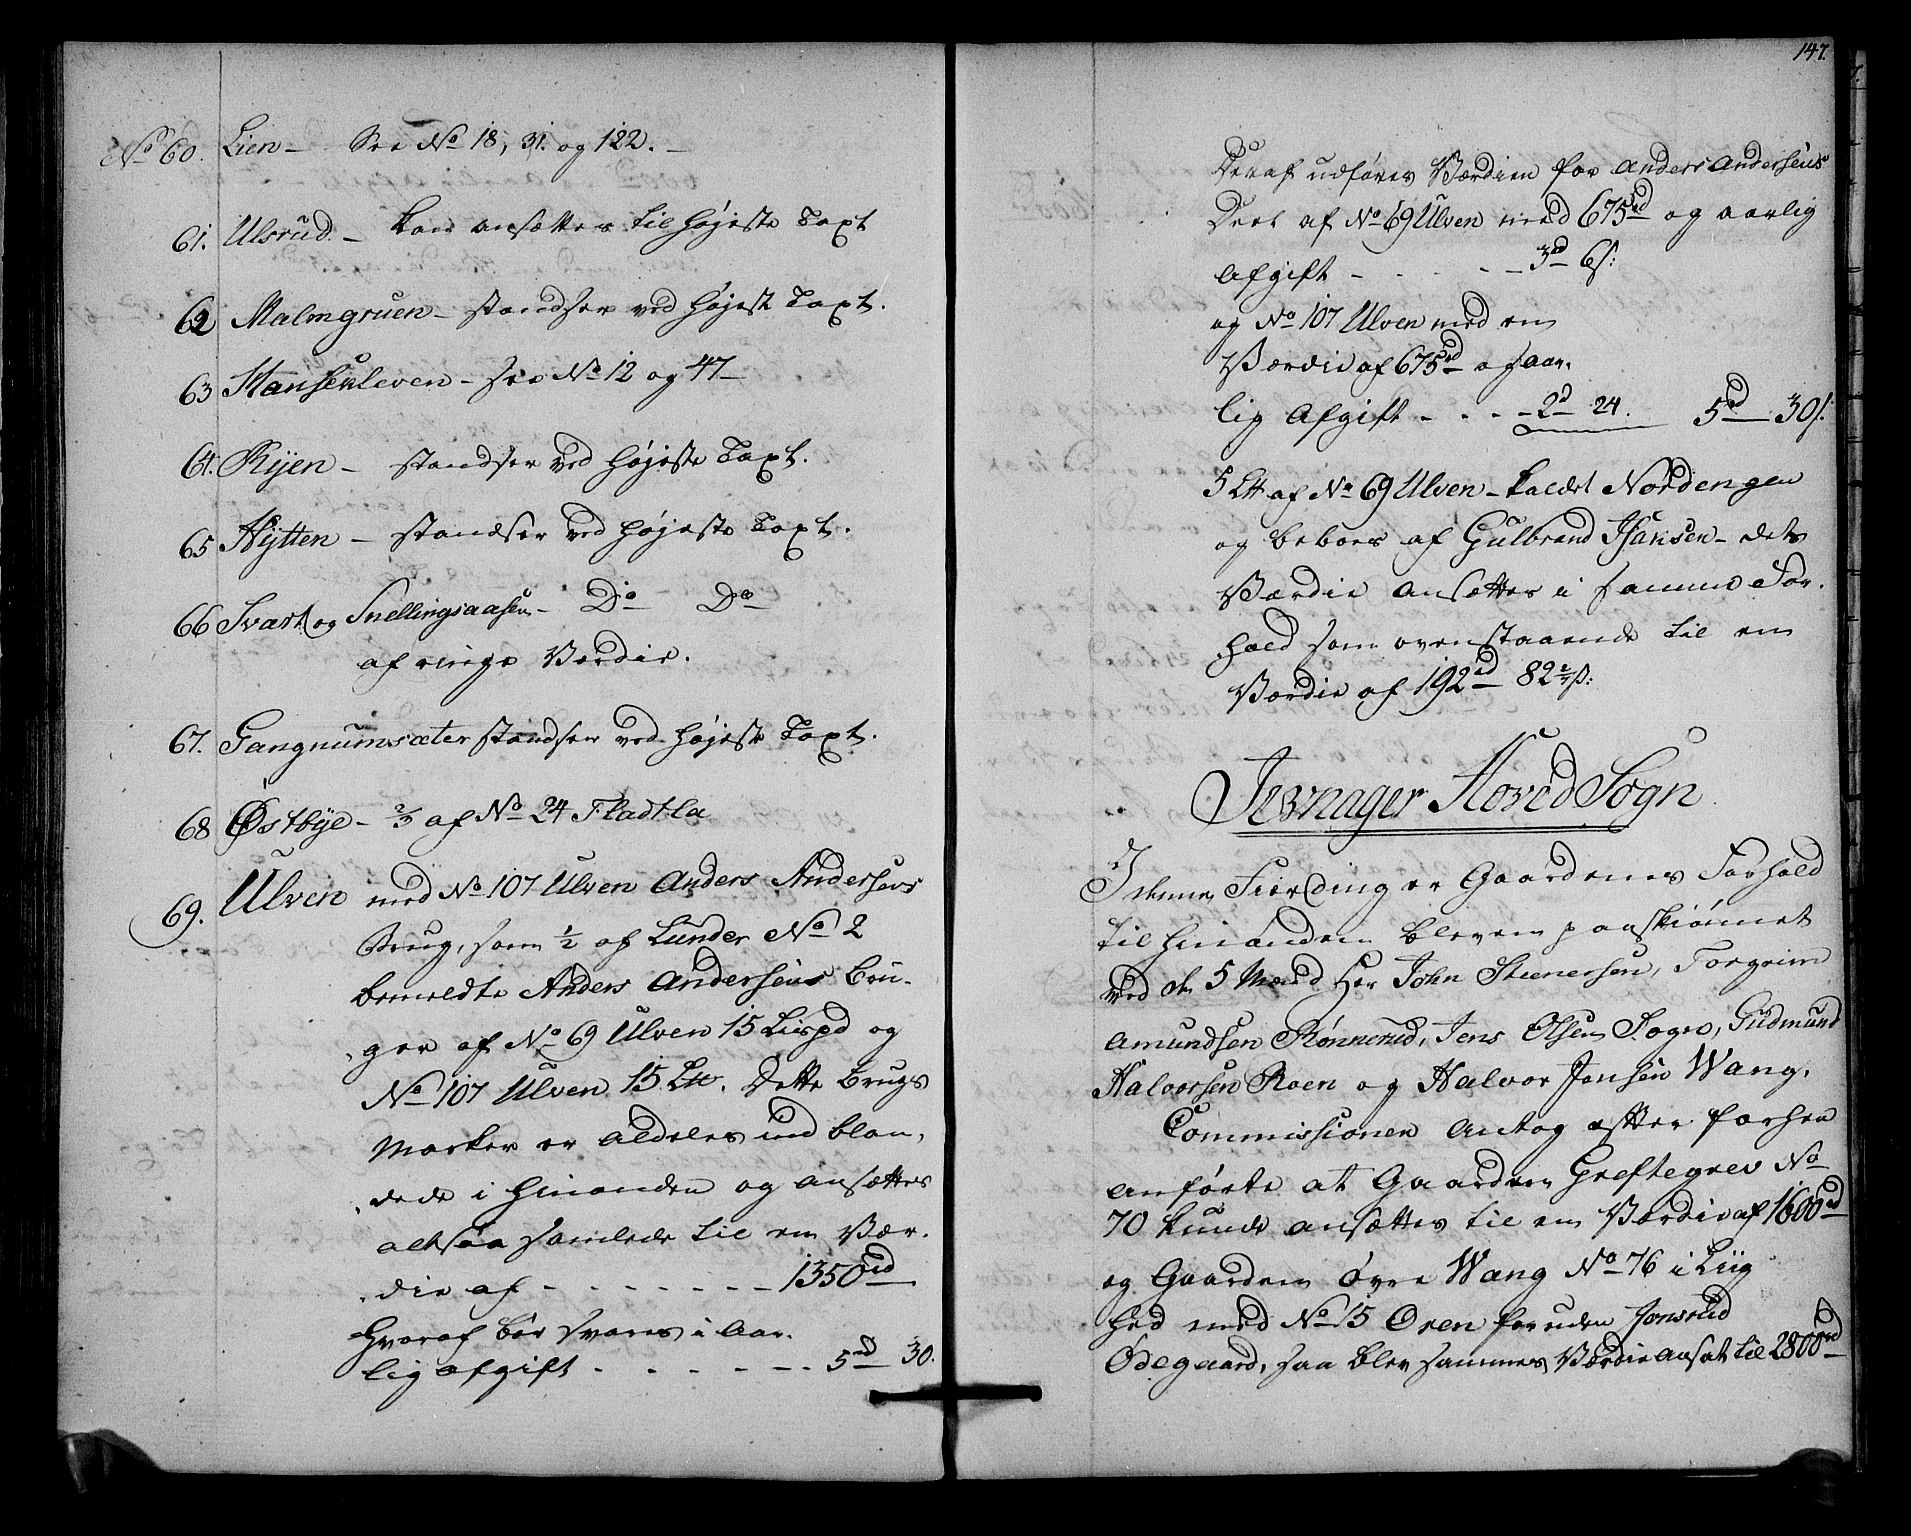 No 60. Lien - See No 18, 31. og 122. -
61. Ulsrud - kan ansættes til højeste Taxt
62 Malmgruen - standser ved højest Taxt.
63 Hansekleven - see No 12 og 47 -
64. Ryen - standser ved højeste Taxt.
65 Hytten - standser ved højeste Taxt.
66 Svart og Snellingsaasen - Do Do
af ringe Værdie.
67. Gangnumsæter standser ved højeste Taxt.
68 Østbye - 2/3 af No 24 Fladtla
69. Ulven med No 107 Ulven Anders Andersens
Brug, som 1/2 af Lunder No 2
bemeldte Anders Andersens bru-
ger af No 69 Ulven 15 Lispd og
No 107 Ulven 15 L℔. Dette Brugs
Marker er aldeles ind blan-
dede i hinanden og ansættes
altsaa samlede til en Vær-
die af - - - - - - - 1350 rd
hvoraf bør svares i Aar-
lig afgift - - - - - - 5 rd 30.
147.
Deraf udføres Værdien for Anders Andersens
Deel af No 69 Ulven med 675 rd og aarlig
Afgift - - - - - 3 rd 6 s:
og No 107 Ulven med en
Værdie af 675 rd og aar-
lig Afgift - - - - 2 d 24. 5 rd 30 s.
5 L℔ af No 69 Ulven - kaldet Nordengen
og beboes af Gulbrand Hansen - dets
Værdie ansættes i samme For-
hold som ovenstaaende til en
Værdie af 192 rd 82 2/7 s:
Jevnager Hoved Sogn
I denne Fierding er Gaardenes Forhold
til hinanden bleven paaskiønnet
ved de 5 Mænd Hr John Steenersen, Torgrim
Amundsen Rønnerud, Jens Olsen Sogn, Gudmund
Halvorsen Roen og Halvor Jonsen Wang.
Commissionen antog efter forhen
anførte at Gaarden Greftegrev No
70 kunde ansættes til en Værdie af 1600 rd
og Gaarden Øvre Wang No 76 i Liig
hed med No 15 Oren foruden Jonsrud
Ødegaard, saa blev sammes Værdie ansat til 2800 rd